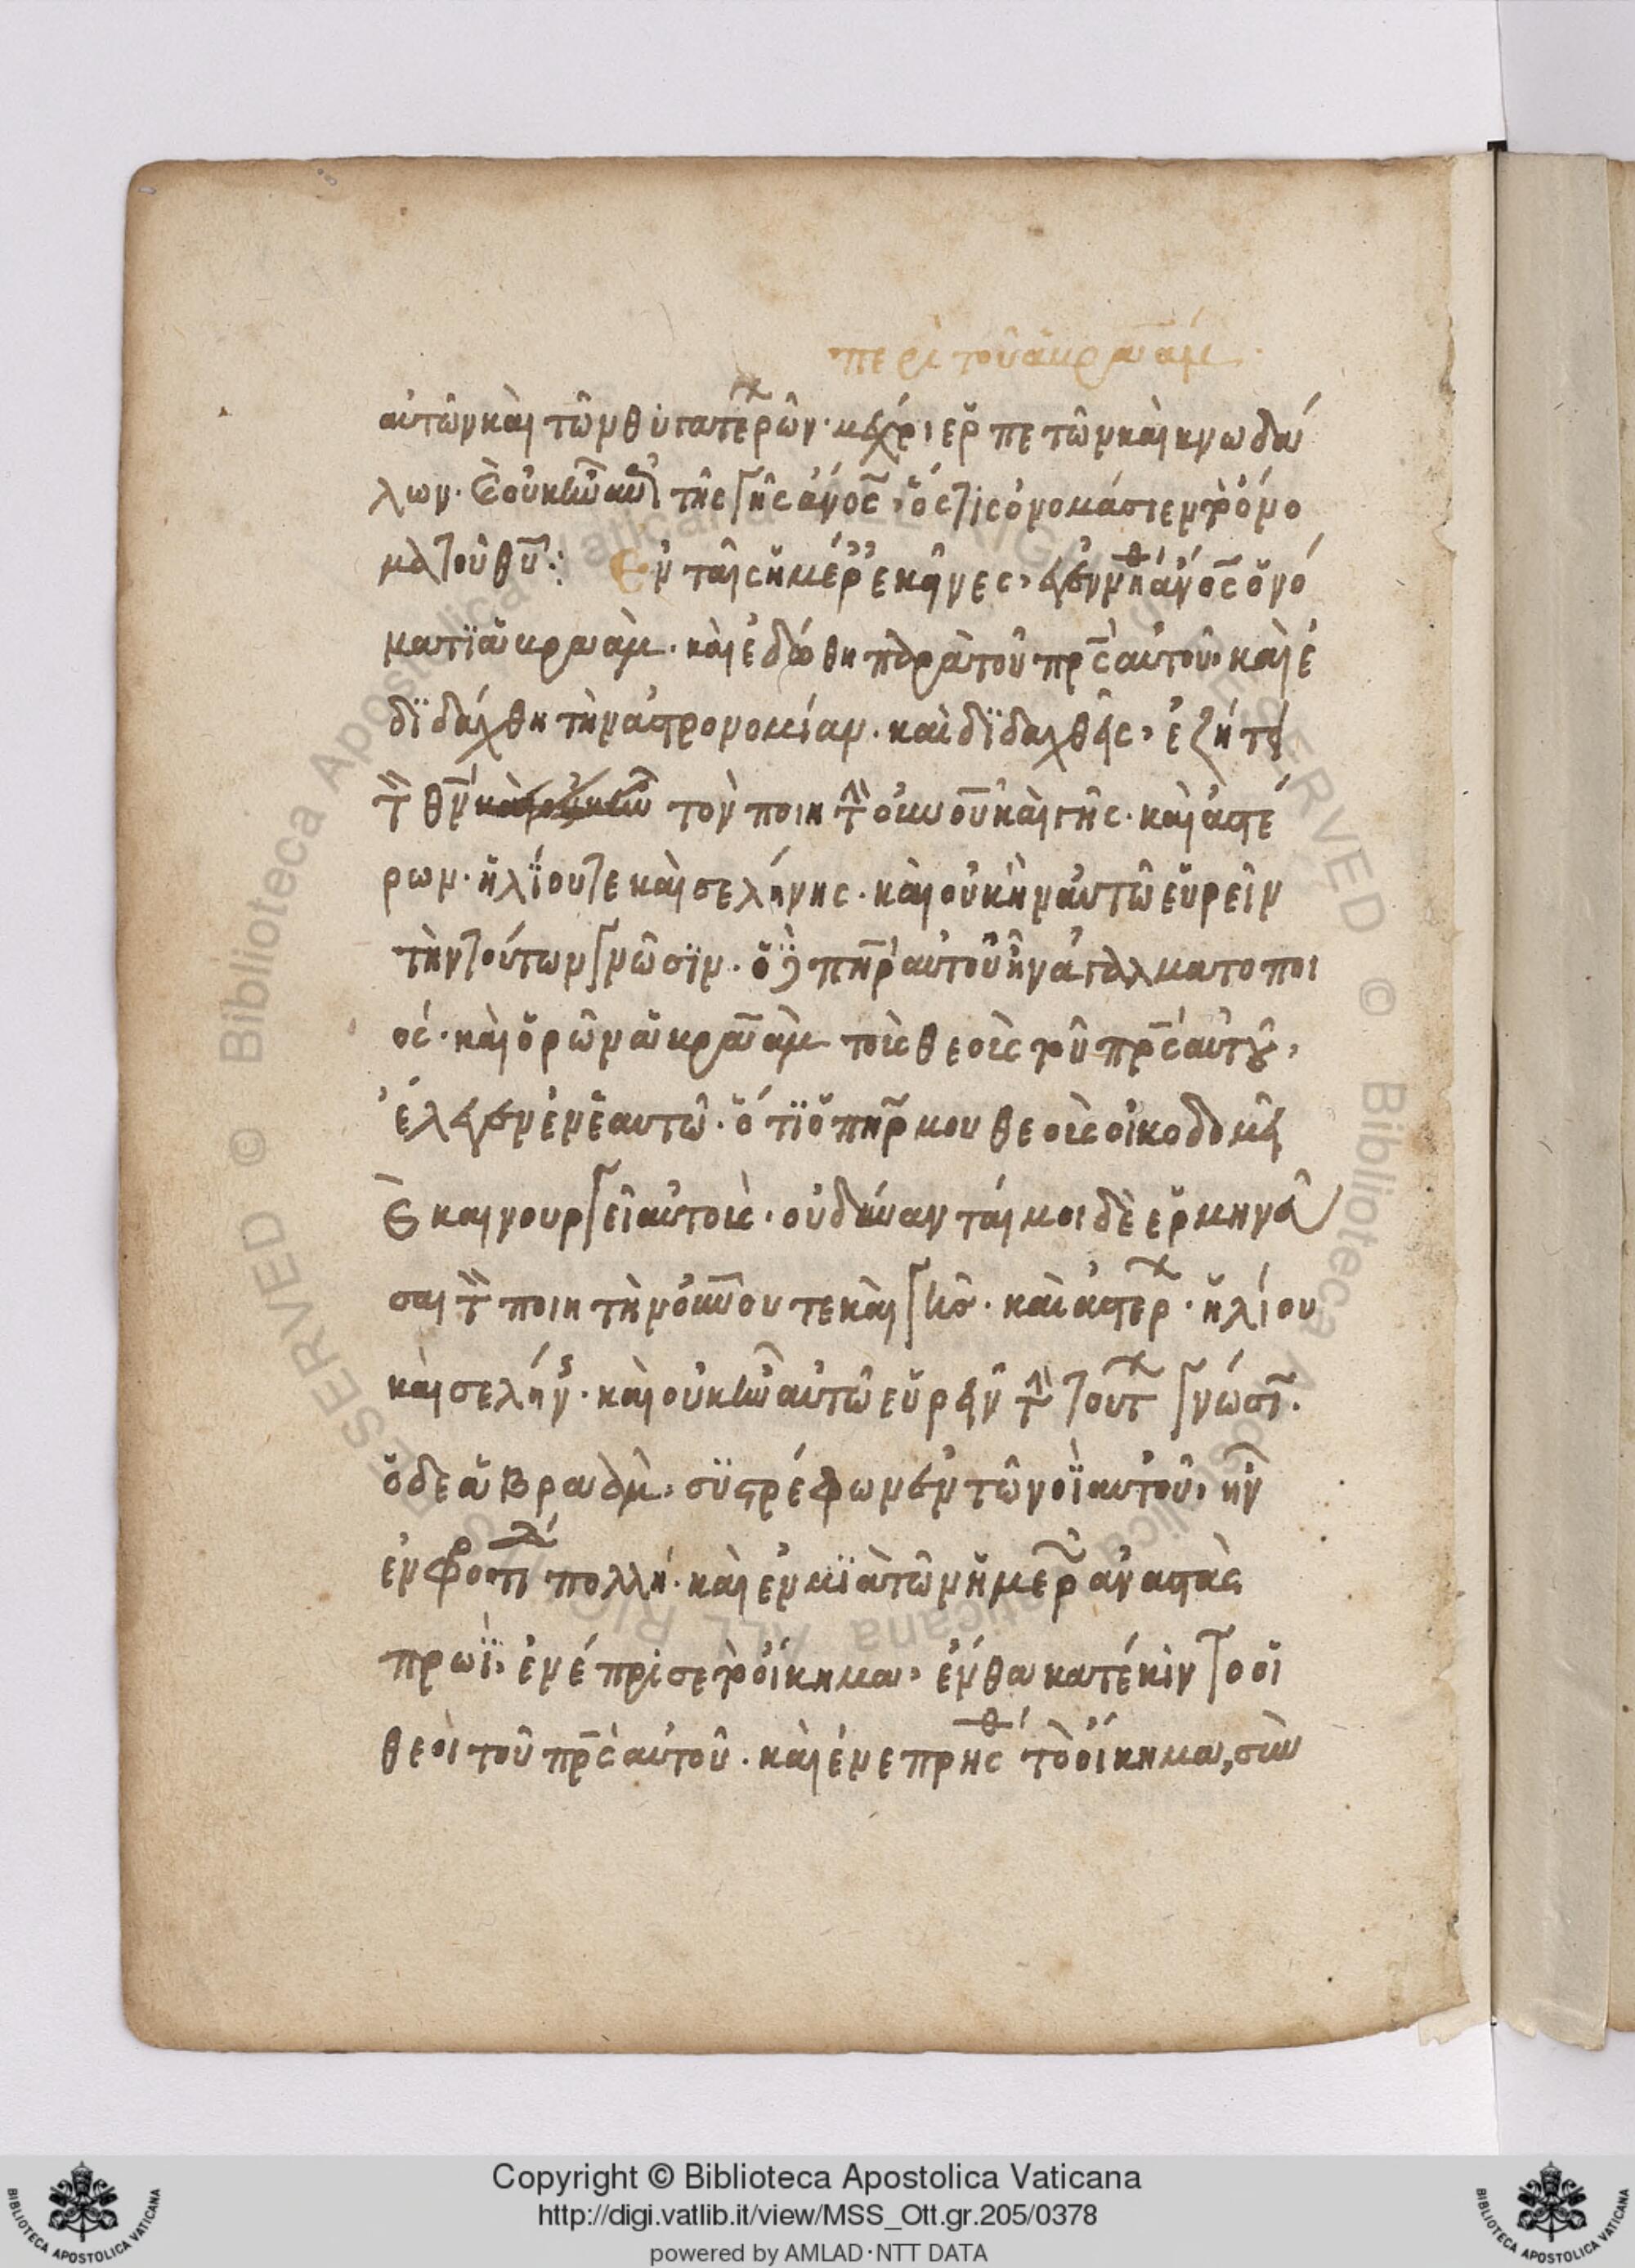 περὶ τοῦ ἀβραάμ.
αὐτῶν καὶ τῶν θυγατέρων· μέχρι ἑρπετῶν καὶ κνωδά
λων. καὶ οὐκ ἦν ἐπὶ τῆς γῆς ἄνος, ὅς τις ὀνομάσιεν τὸ ὄνο
μα τοῦ θυ: Ἐν ταῖς ἡμέρες ἐκείνες, ἐγεννήθη ἄνος ὀνό
ματι ἀβραάμ. καὶ ἐδόθη παρὰ τοῦ πρς αὐτοῦ, καὶ ἐ
διδάχθη τὴν ἀστρονομίαν. καὶ διδαχθείς, ἐζήτει
τὸν θν τὸν ποιητὴν οὐνοῦ καὶ γῆς. καὶ ἀστέ
ρων. ἡλίου τε καὶ σελήνης. καὶ οὐκ ἦν αὐτῶ εὑρεῖν
τὴν τούτων γνῶσιν. ὁ δὲ πηρ αὐτοῦ ἦν ἀγαλματοποι
ός. καὶ ὁρῶν ἀβραὰμ τοὺς θεοὺς τοῦ πρς αὐτοῦ,
ἔλεγεν ἐν ἑαυτῶ. ὅτι ὁ πηρ μου θεοὺς οἰκοδομεῖ
καὶ καινουργεῖ αὐτούς. οὐ δύνανταί μοι δὲ ἑρμηνεῦ
σαι τὸν ποιητὴν οὐνου τε καὶ γῆς. καὶ ἀστέρων. ἡλίου
καὶ σελήνης. καὶ οὐκ ἦν αὐτῶ εὑρεῖν τὴν τούτων γνῶσιν.
ὁ δε ἀβραὰμ, συστρέφων ἐν τῶ νοῒ αὐτοῦ, ἦν
ἐν φροντίδι πολλῆ. καὶ ἐν μιᾶ τῶν ἡμερῶν ἀναστὰς
πρωῒ, ἐνέπρισε τὸ οἴκημα, ἔνθα κατέκιντο οἱ
θεοὶ τοῦ πρς αὐτοῦ. καὶ ἐνεπρήσθη τὸ οἴκημα, σὺν
Copyright © Biblioteca Apostolica Vaticana
http://digi.vatlib.it/view/MSS_Ott.gr.205/0378
powered by AMLAD·NTT DATA
BIBLIOTECA APOSTOLICA VATICANA
BIBLIOTECA APOSTOLICA VATICANA